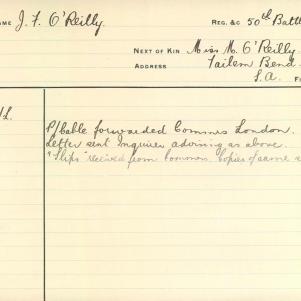 NAME J. F. O'Reilly REG. &C 50th Batt
NEXT OF KIN Miss M. O'Reilly
ADDRESS Tailem Bend
S.A.
P/Cable forwarded Commrs London.
Letter sent Inquirer advising as above.
"Slips" received from Common. Copies of same